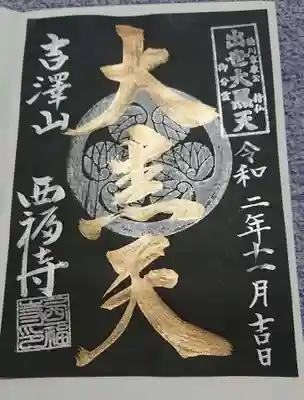 出世大黒天
令和二年十一月吉日
大黒天
吉澤山
西福寺